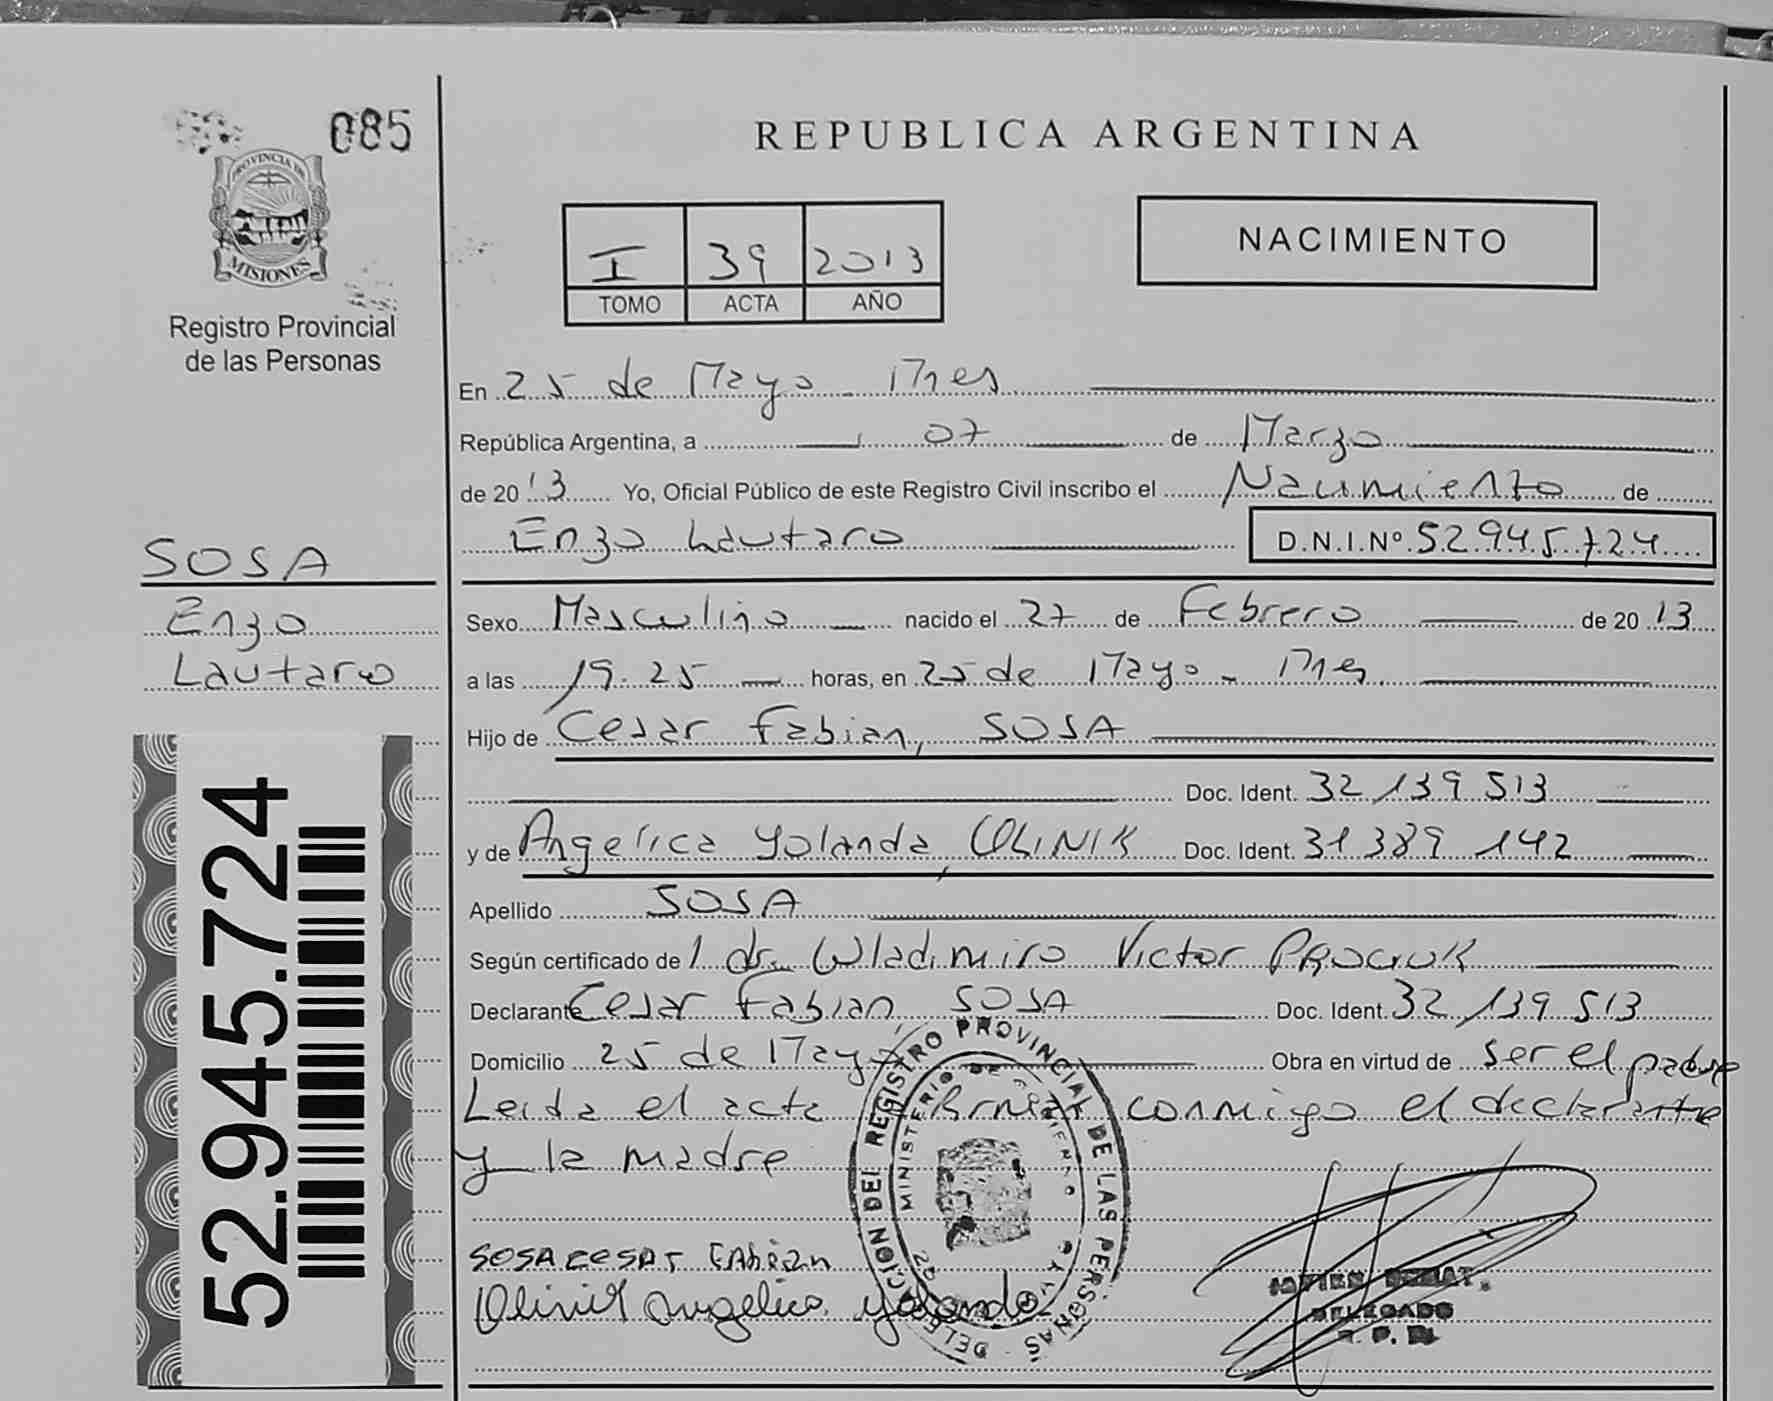 085
PROVINCIA DE
MISIONES
Registro Provincial
de las Personas
SOSA
Enzo
Lautaro
52.945.724
REPUBLICA ARGENTINA
I 39 2013
TOMO ACTA AÑO
NACIMIENTO
En 25 de Mayo - Mnes
República Argentina, a 07 de Marzo
de 2013 Yo, Oficial Público de este Registro Civil inscribo el Nacimiento de
Enzo Lautaro D.N.I.Nº 52945724
Sexo Masculino nacido el 27 de Febrero de 2013
a las 19.25 horas, en 25 de Mayo - Mnes
Hijo de Cesar Fabian, SOSA
Doc. Ident. 32 139 513
y de Angelica Yolanda, OLINIK Doc. Ident. 31 389 142
Apellido SOSA
Según certificado de l dr. Wladimiro Victor
Declarante Cesar Fabian SOSA Doc. Ident. 32 139 513
Domicilio 25 de Mayo Obra en virtud de ser el padre
Leida el acta firman conmigo el declarante
y la madre
DELEGACION DEL REGISTRO PROVINCIAL DE LAS PERSONAS
MINISTERIO DE
SOSA CESAR FABian
Olinik Angelica Yolanda
DELEGADO